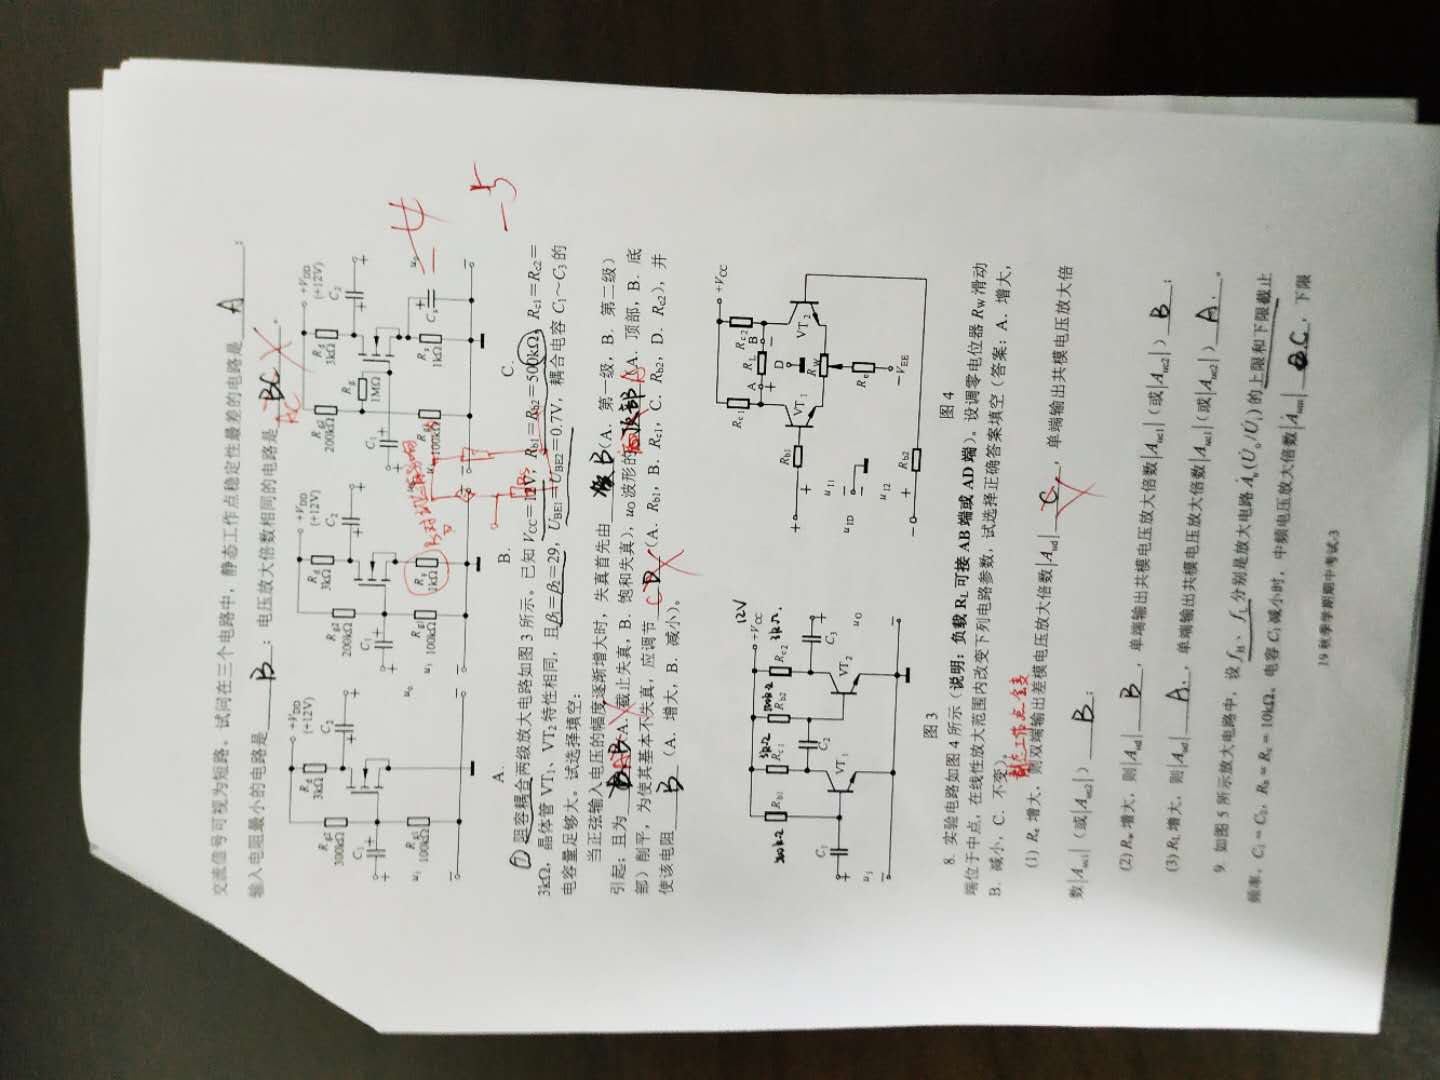 交流信号可视为短路。试问在三个电路中，静态工作点稳定性最差的电路是 A ；
输入电阻最小的电路是 B ；电压放大倍数相同的电路是 BC 。
AC
+VDD
(+12V)
Rd
3kΩ
Rg2
300kΩ
C2
C1
Rg1
100kΩ
uo
+VDD
(+12V)
Rd
3kΩ
Rg2
200kΩ
C2
C1
ui
Rg1
100kΩ
Rs
1kΩ
+VDD
(+12V)
Rd
3kΩ
Rg2
200kΩ
C2
Rg
1MΩ
C1
100kΩ
Rs
1kΩ
Cs
uo
Rs
-5
A.
B.
C.
⑦ 阻容耦合两级放大电路如图 3 所示。已知 VCC=12V，Rb1=Rb2=500kΩ，Rc1=Rc2=
3kΩ，晶体管 VT1、VT2特性相同，且β1=β2=29，UBE1=UBE2=0.7V，耦合电容 C1～C3的
电容量足够大。试选择填空：
当正弦输入电压的幅度逐渐增大时，失真首先由 B（A．第一级，B．第二级）
引起；且为 BAB（A．截止失真，B．饱和失真），uO波形的 顶部 A（A．顶部，B．底
部）削平，为使其基本不失真，应调节 C D （A．Rb1，B．Rc1，C．Rb2，D．Rc2），并
使该电阻 B （A．增大，B．减小）。
12V
+VCC
500kΩ
Rb1
3kΩ
Rc1
500kΩ
Rb2
Rc2
3kΩ.
C1
C2
C3
VT1
VT2
ui
uO
图 3
+VCC
Rc1
A
RL
B
Rc2
D
Rb1
VT1
VT2
RW
uI1
uID
Re
uI2
-VEE
Rb2
图 4
8. 实验电路如图 4 所示（说明：负载 RL可接 AB 端或 AD 端）。设调零电位器 RW滑动
端位于中点，在线性放大范围内改变下列电路参数，试选择正确答案填空（答案：A．增大，
B．减小，C．不变）。
静态工作点会变
(1) Re 增大，则双端输出差模电压放大倍数|Aud| C ，单端输出共模电压放大倍
数|Auc1|（或|Auc2|） B ；
(2) Rw 增大，则|Aud| B ，单端输出共模电压放大倍数|Auc1|（或|Auc2|） B ；
(3) RL 增大，则|Aud| A. ，单端输出共模电压放大倍数|Auc1|（或|Auc2|） A. 。
9. 如图 5 所示放大电路中，设 fH、fL 分别是放大电路 Ȧu (U̇o/U̇i) 的上限和下限截止
频率，C1=C2，Rb=Rc=10kΩ。电容 C1 减小时，中频电压放大倍数|Ȧum| C ，下限
19 秋季学期期中考试-3